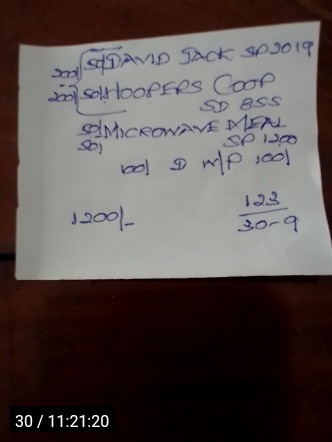 200/ 50/ DAVID JACK SP 2019
200/ 50/ HOOPERS COOP
SD 855
50/ MICROWAVE MEAL
50/ SP 1200
100/ D W/P 100/
1200/-
123
30-9
30 / 11:21:20